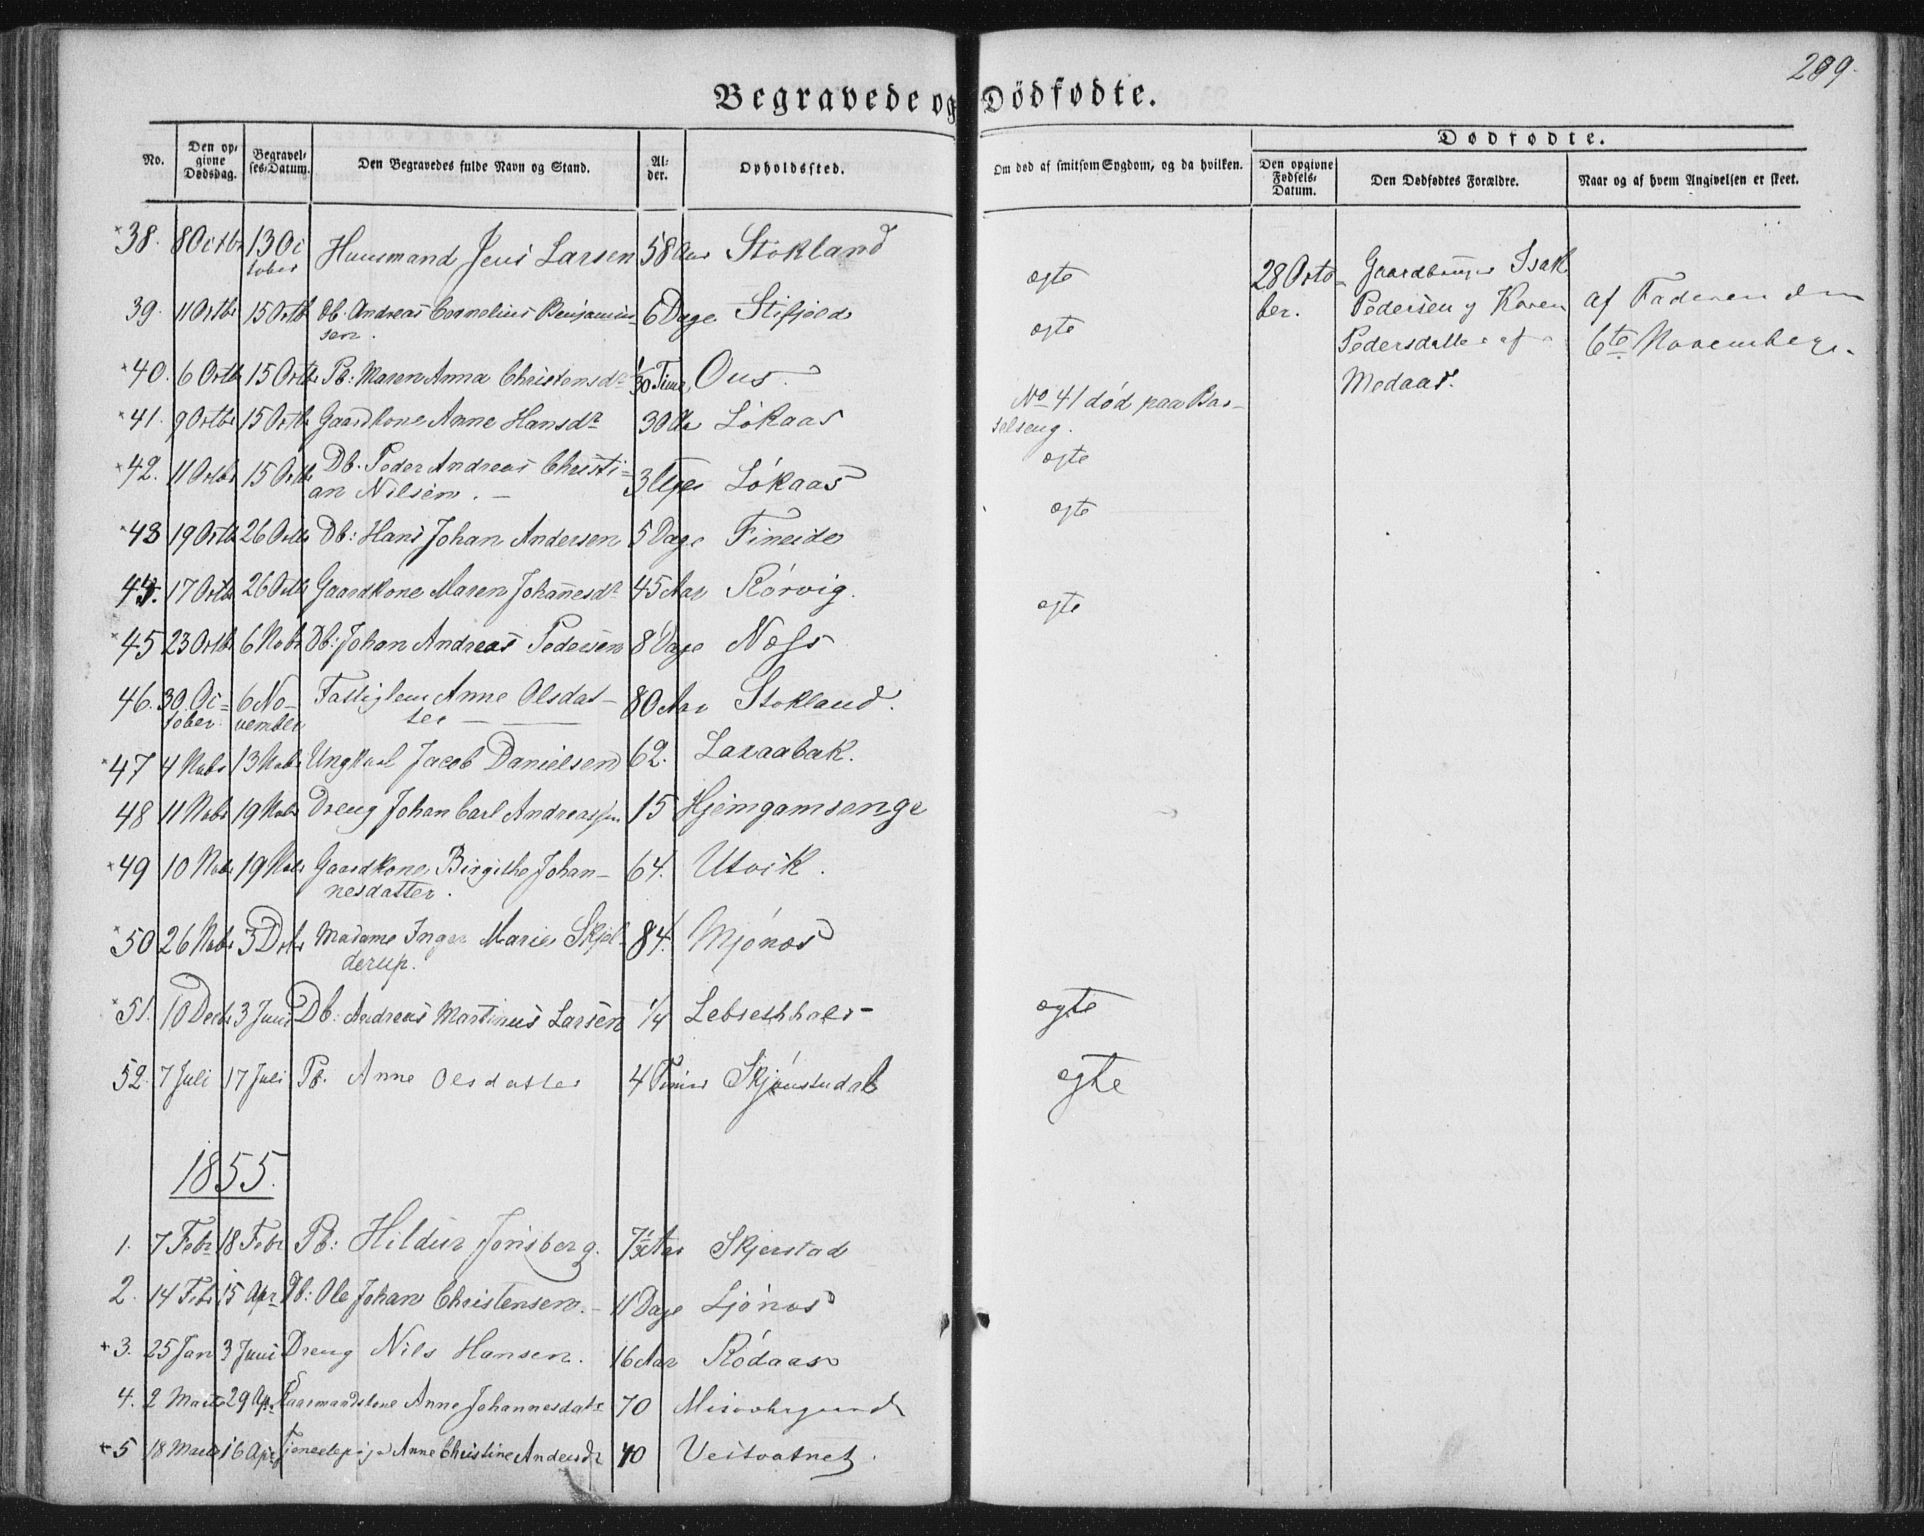 209.
Begravede og Dödfødte.
No.
Den opgivne Dødsdag.
Begravelses-Datum.
Den Begravedes fulde Navn og Stand.
Alder.
Opholdssted.
Om død af smitsom Sygdom, og da hvilken.
Dødfødte.
Den opgivne Fødsels-Datum.
Den Dødfødtes Forældre.
Naar og af hvem Angivelsen er skeet.
38. 8 Octbr 13 October Huusmand Jens Larsen 58 Aar Stokland
39. 11 Octbr 15 Octb Db. Andreas Cornelius Benjaminsen. 6 Dage Stifjeld ægte
40. 6 Octb 15 Octbr Pb: Maren Anna Christensdr 1/30 Time Ous. ægte
41. 9 Octbr 15 Octb Gaardkone Anne Hansdr 30 Aar Lökaas No 41 død paa Barselseng.
42. 11 Octbr 15 Octb Db. Peder Andreas Christian Nilsen. 3 Uger Lökaas ægte
43 19 Octb 26 Octb Db: Hans Johan Andersen 5 Dage Fineide ægte
44. 17 Octbr 26 Octb Gaardkone Maren Johanesdr 45 Aar Rörvig.
45 23 Octb 6 Nobr Db: Johan Andreas Pedersen 8 Dage Næss ægte
46. 30. October 6 November Fattiglem Anne Olsdatter 80 Aar Stokland.
47 4 Nobr 13 Nobr Ungkarl Jacob Danielsen 62. Laxaabak.
48 11 Nobr 19 Nobr Dreng Johan Carl Andreassen 15 Hjemgamsenge
49 10 Nobr 19 Nobr Gaardkone Birgithe Johannesdatter. 64. Utvik.
50 26 Nobr 3 Decbr Madame Inger Marie Skjelderup. 84. Mjönæs
51. 10 Decbr 3 Juni Db: Andreas Martinus Larsen 1/4 ægte
52. 7 Juli 17 Juli Pb. Anne Olsdatter 4 Timer Skjönstudal ægte
28 October.
Gaardbruger Isak
Pedersen og Karen
Pedersdatter af
Medaas.
af Faderen den
6te November.
1855.
1. 7 Febr 18 Febr Pb: Hildur Jonsberg. 7 1/2 Aar Skjerstad
2. 14 Febr 15 Apr Db: Ole Johan Christensen. 11 Dage Ljönæs
3. 25 Jan 3 Juni Dreng Nils Hansen. 16 Aar Rödaas
4. 2 Marts 29 Apr Kaarmandskone Anne Johannesdatr 70 Misvær
5 18 Marts 16 Apr Tjenestepige Anne Christine Andersdr 40 Vestvatnet.